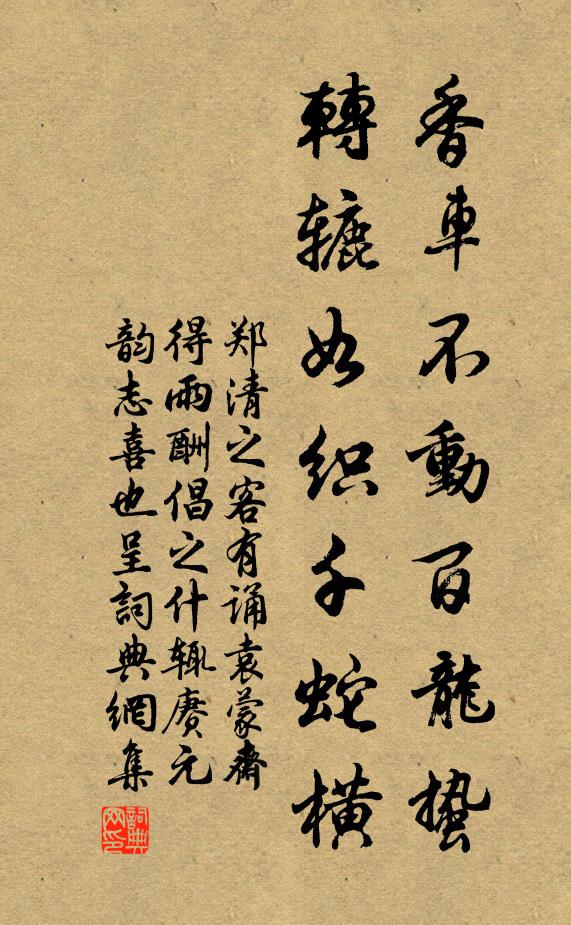 香車不動百龍蟄
轉辘如织千蛇橫
郑清之客有诵袁蒙齋
得雨酬倡之什輒赓元
韵志喜也呈詞典網集
詞典
网印